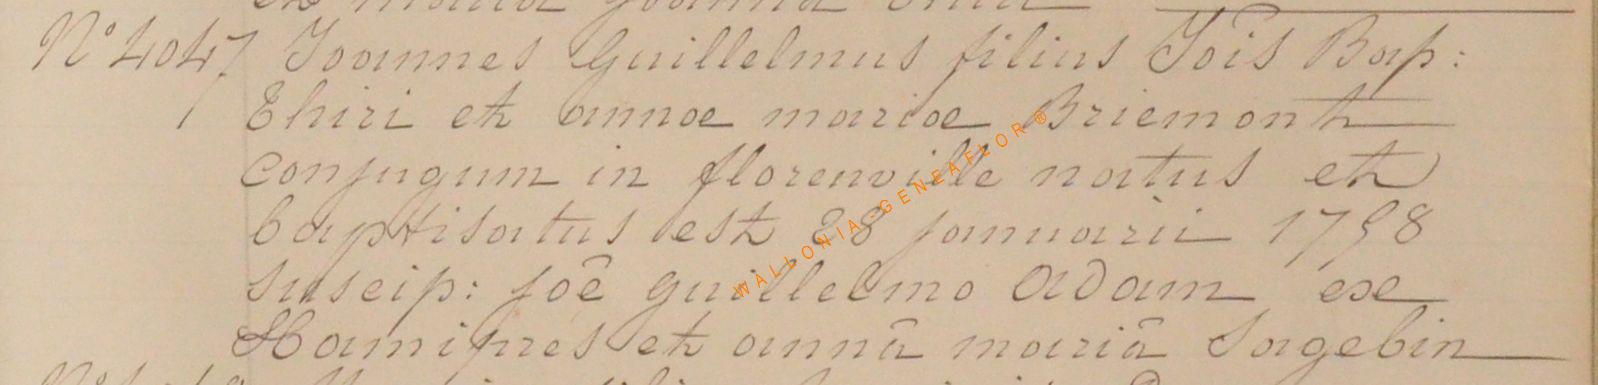 N° 4047 Joannes Guillelmus filius Jois Bap:
Thiri et annae mariae Briemont
conjugum in florenville natus et
baptisatus est 28 januarii 1758
suscip: joê guillelmo Adam ex
Hamipres et annâ mariâ Sagebin
WALLONIA-GENEAFLOR®